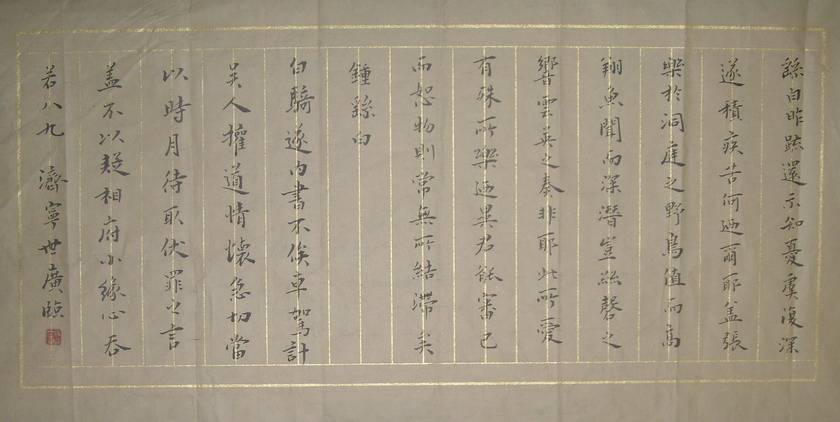 繇白昨疏還示知憂虞復深
遂積疾苦何迺爾耶盖張
樂於洞庭之野鳥值而高
翔魚聞而深潛豈絲磬之
響雲英之奏非耶此所愛
有殊所樂迺異君能審己
而恕物則常無所結滯矣
鍾繇白
白騎遂內書不俟車駕計
吴人權道情懷急切當
以時月待取伏罪之言
盖不以疑相府小緣心吞
若八九 濟寧世廣臨